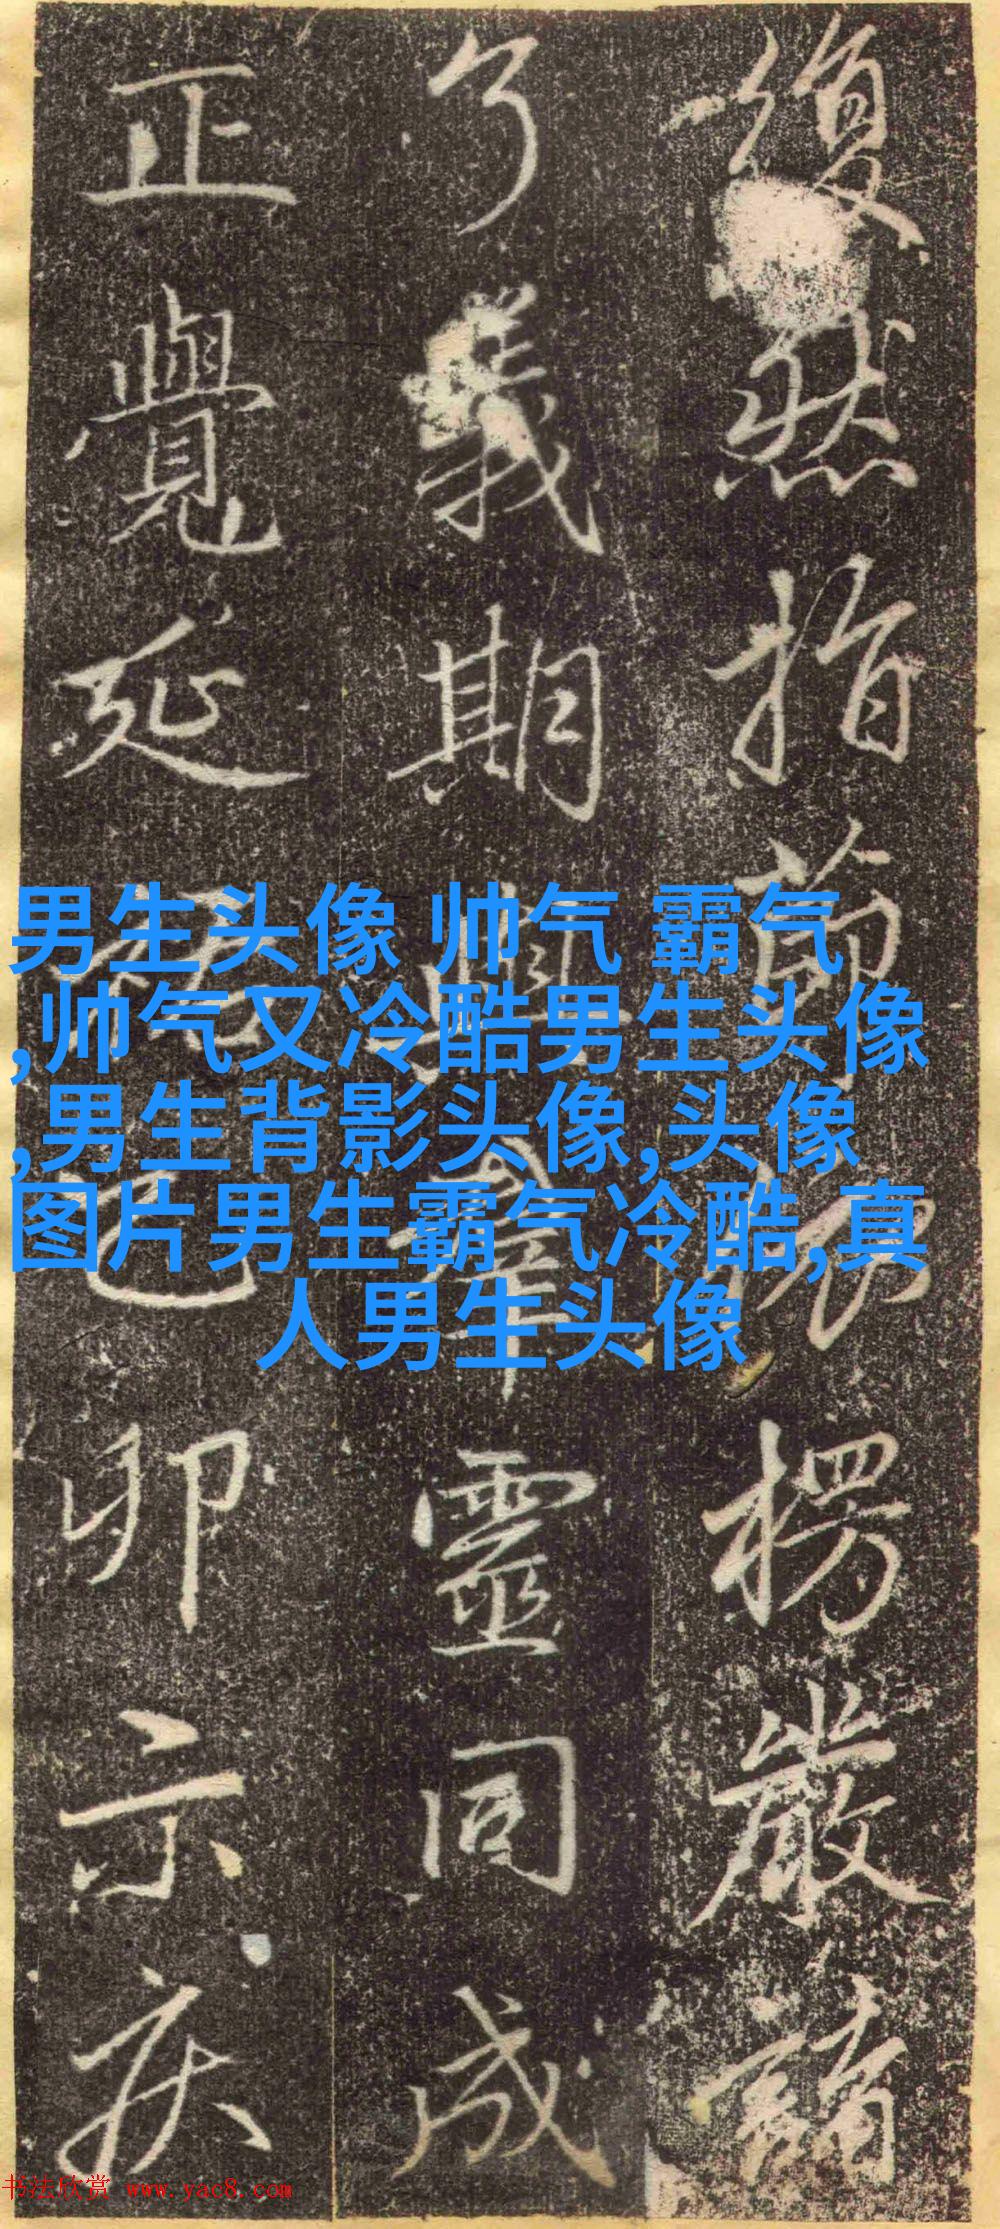 復然指楞嚴
了義期與羣靈同成
正覺延卯示疾
男生头像 帅气 霸气
,帅气又冷酷男生头像
,男生背影头像,头像
图片男生霸气冷酷,真
人男生头像
书法欣赏 www.yac8.com